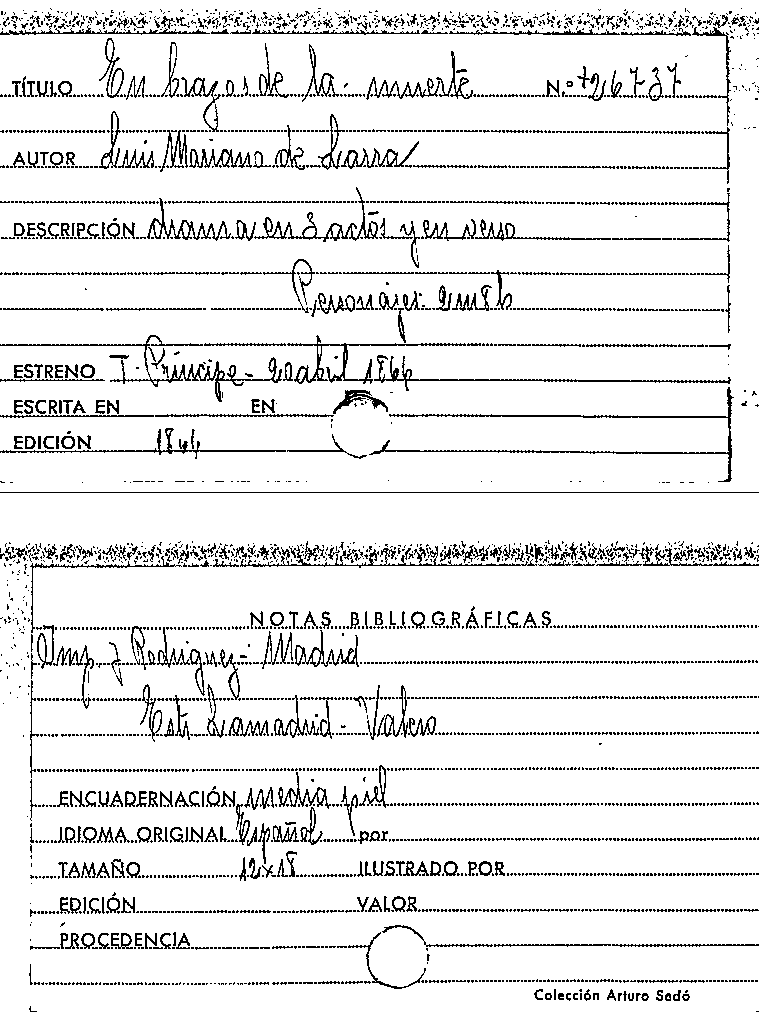 TÍTULO En brazos de la muerte N.º 726737
AUTOR Luis Mariano de Larra
DESCRIPCIÓN drama en 3 actos y en verso
Personajes 2m 8h
ESTRENO T. Príncipe - 20 abril 1866
ESCRITA EN EN
EDICIÓN 1866
NOTAS BIBLIOGRÁFICAS
Imp J Rodriguez - Madrid
Estr Lamadrid - Valero
ENCUADERNACIÓN media piel
IDIOMA ORIGINAL Español por
TAMAÑO 12x18 ILUSTRADO POR
EDICIÓN VALOR
PROCEDENCIA
Colección Arturo Sedó